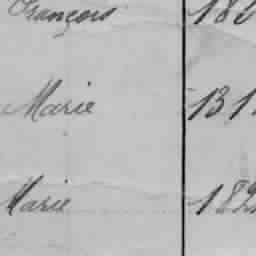 François 182
Marie 131
Marie 182